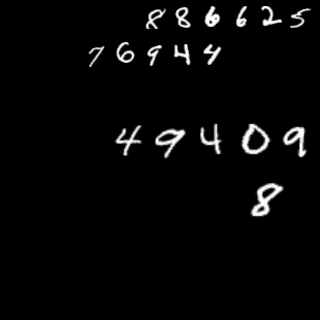 886625
76944
49409
8